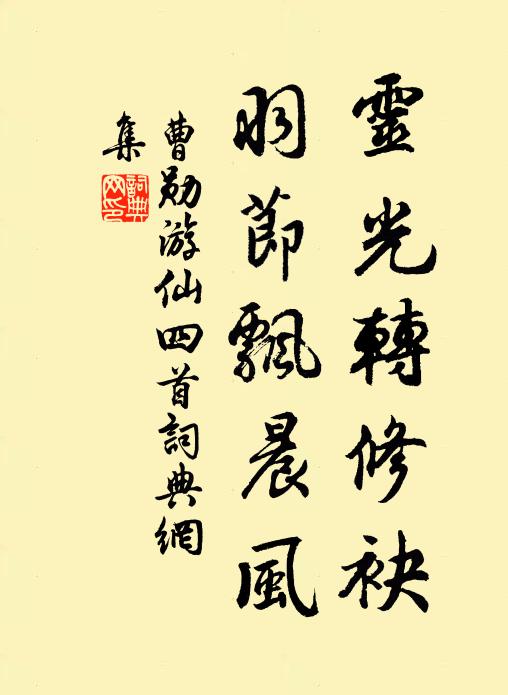 靈光轉修袂
羽節飄晨風
曹勛游仙四首詞典網
集
詞典
網印